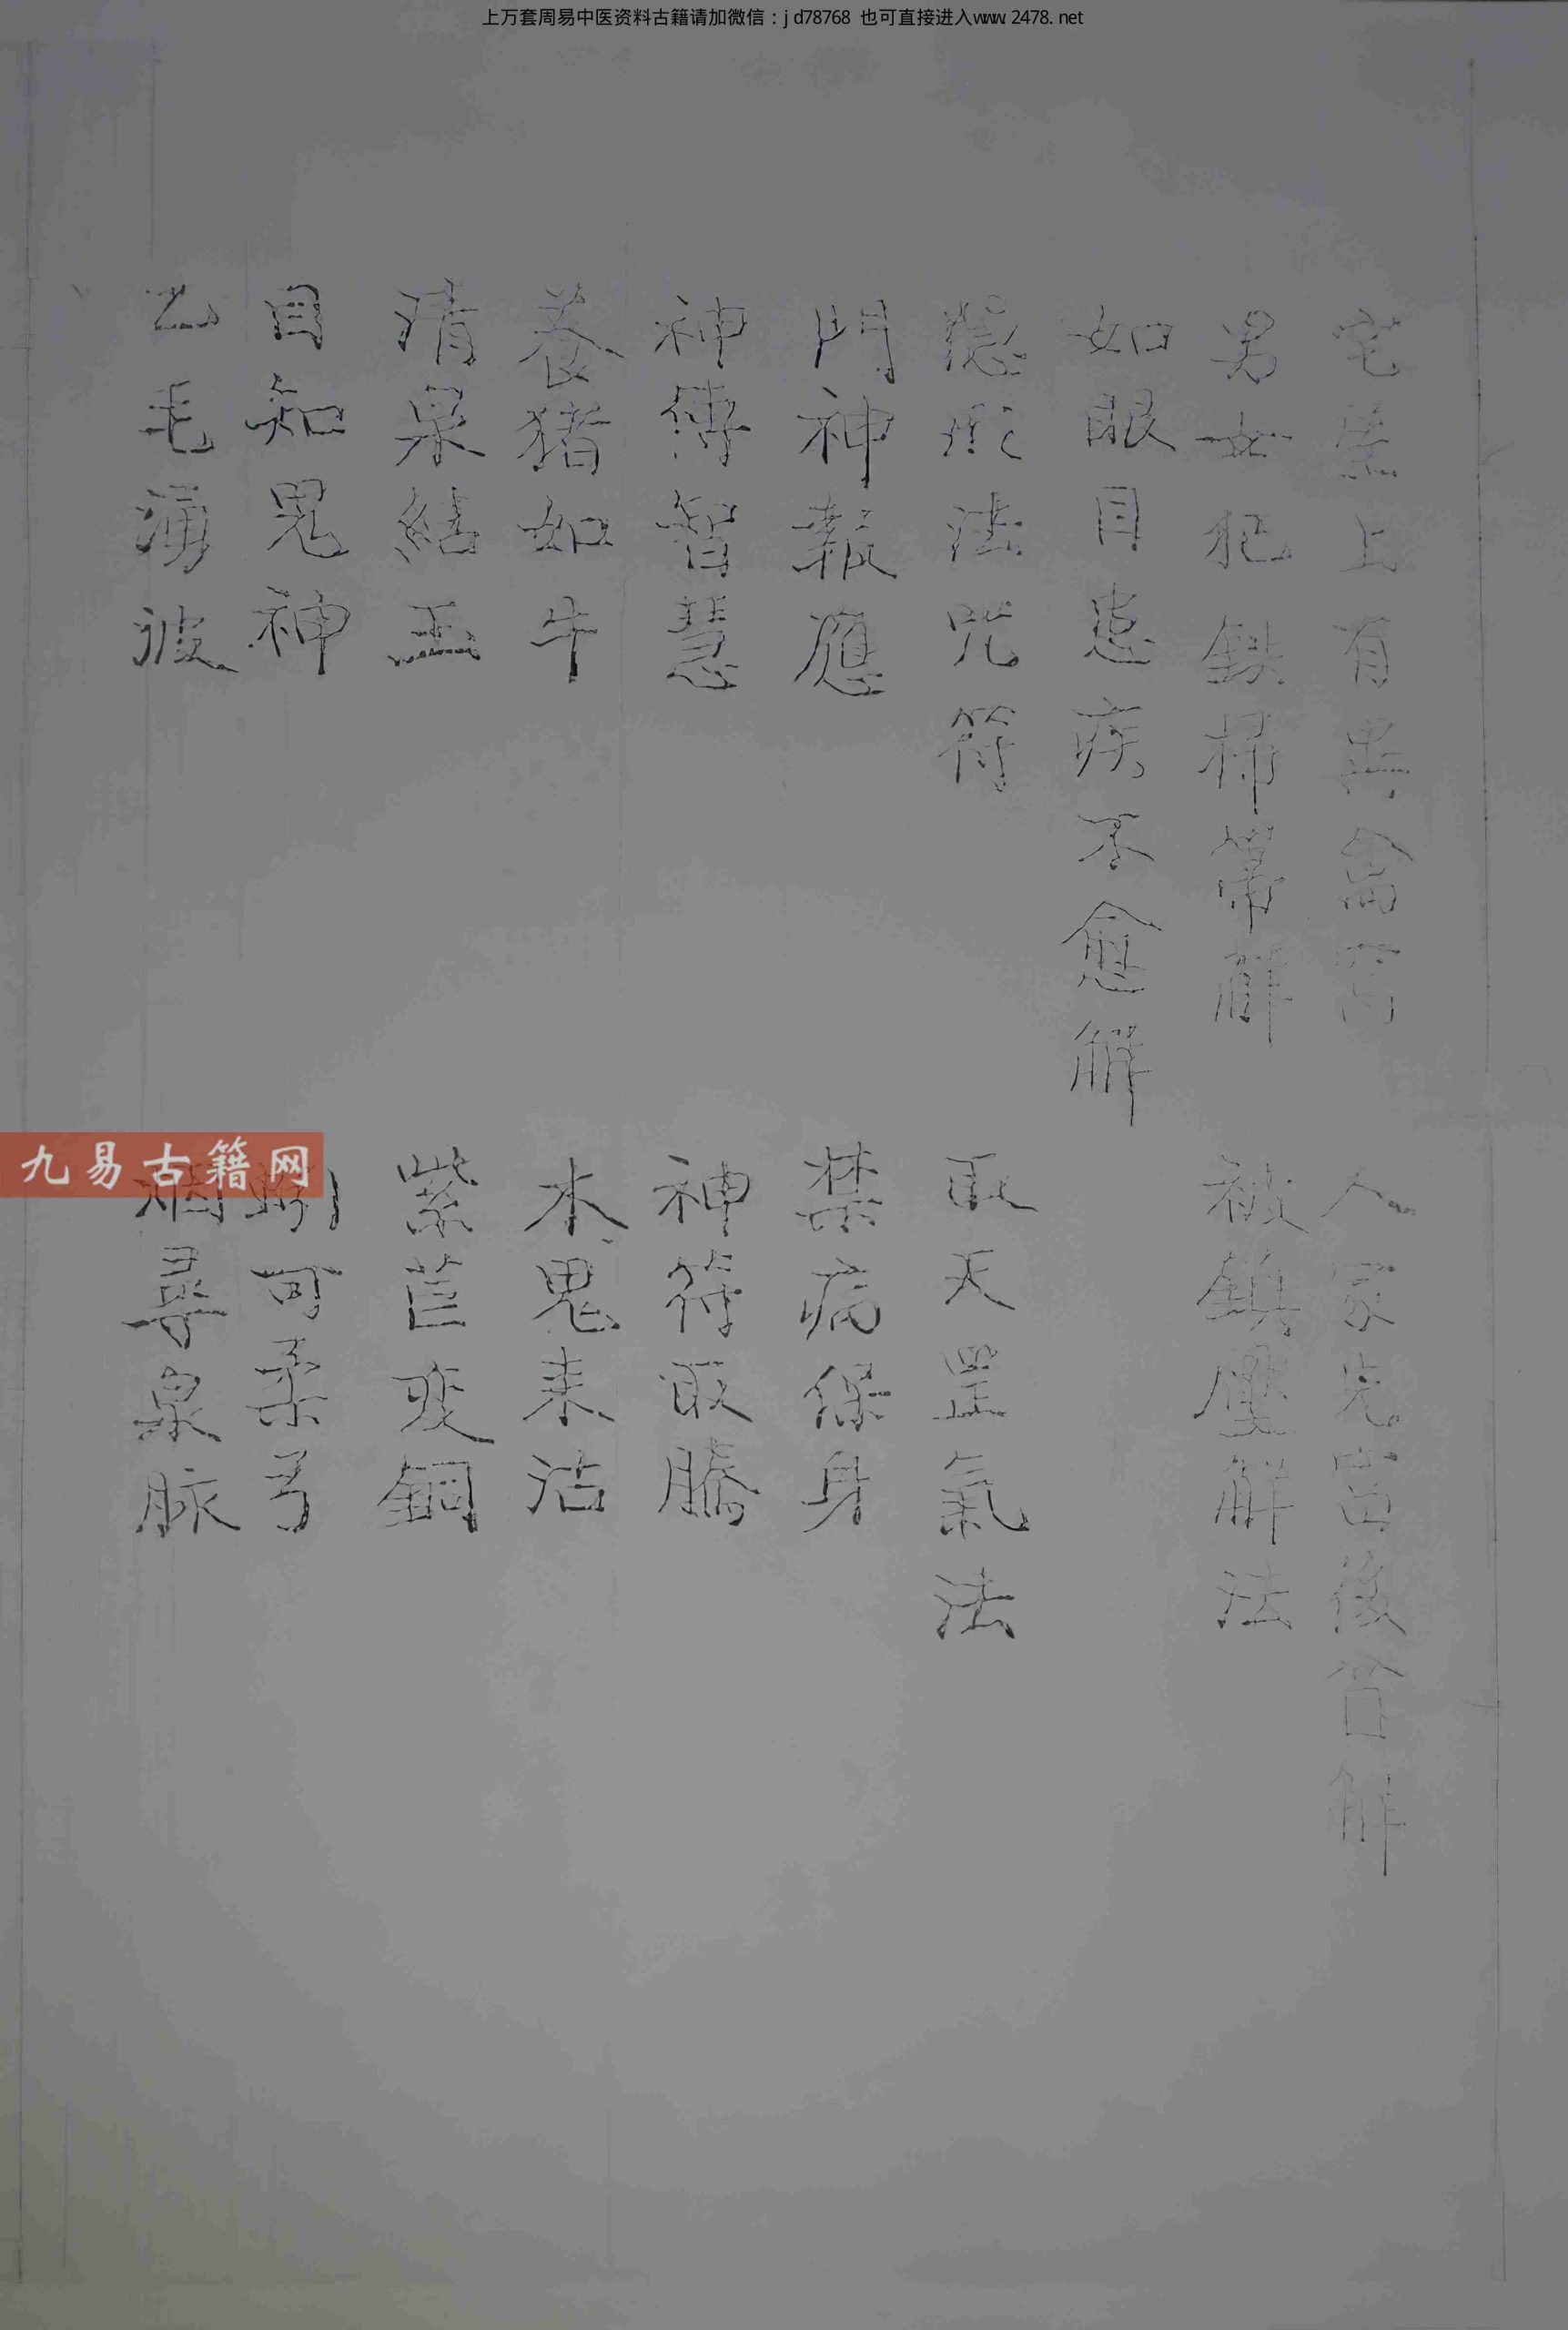 上万套周易中医资料古籍请加微信：jd78768 也可直接进入www.2478.net
宅屋上有興畜
人家先富後 解
男女犯鉄掃箒解
被鎮壓解法
如眼目患疾不愈解
隱形法咒符
取天罡氣法
門神報應
禁病保身
神傳智慧
神符取勝
養猪如牛
木鬼耒沽
清泉結玉
紫苣变銅
目知鬼神
可柔弓
乙毛湧波
尋泉脉
九易古籍网